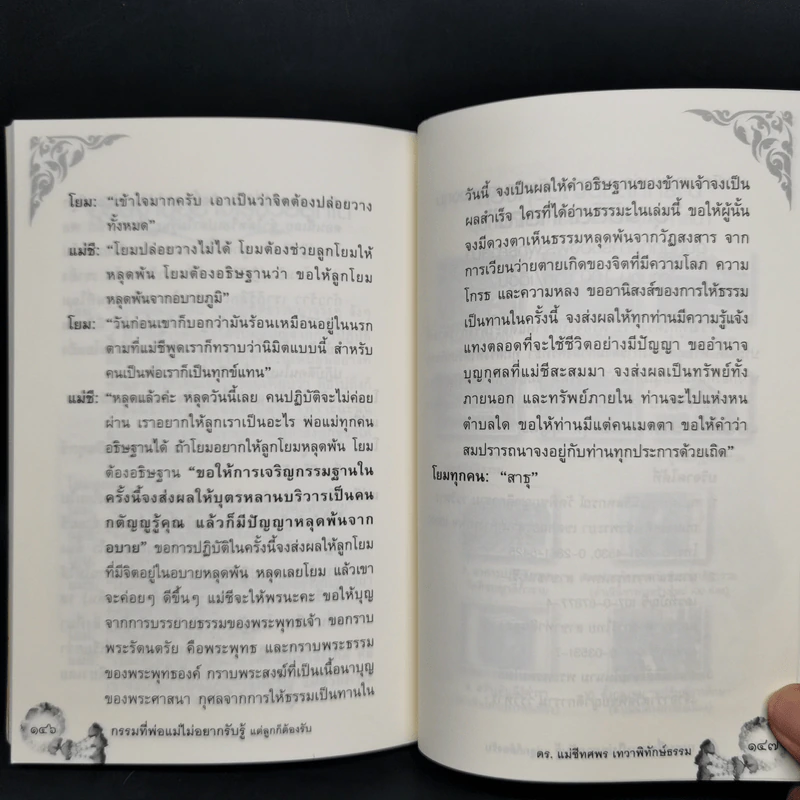 โยม: “เข้าใจมากครับ เอาเป็นว่าจิตต้องปล่อยวาง
ทั้งหมด”
แม่ชี: “โยมปล่อยวางไม่ได้ โยมต้องช่วยลูกโยมให้
หลุดพ้น โยมต้องอธิษฐานว่า ขอให้ลูกโยม
หลุดพ้นจากอบายภูมิ”
โยม: “วันก่อนเขาก็บอกว่ามันร้อนเหมือนอยู่ในนรก
ตามที่แม่ชีพูดเราก็ทราบว่านิมิตแบบนี้ สำหรับ
คนเป็นพ่อเราก็เป็นทุกข์แทน”
แม่ชี: “หลุดแล้วค่ะ หลุดวันนี้เลย คนปฏิบัติจะไม่ค่อย
ผ่าน เราอยากให้ลูกเราเป็นอะไร พ่อแม่ทุกคน
อธิษฐานได้ ถ้าโยมอยากให้ลูกโยมหลุดพ้น โยม
ต้องอธิษฐาน “ขอให้การเจริญกรรมฐานใน
ครั้งนี้จงส่งผลให้บุตรหลานบริวารเป็นคน
กตัญญูรู้คุณ แล้วก็มีปัญญาหลุดพ้นจาก
อบาย” ขอการปฏิบัติในครั้งนี้จงส่งผลให้ลูกโยม
ที่มีจิตอยู่ในอบายหลุดพ้น หลุดเลยโยม แล้วเขา
จะค่อยๆ ดีขึ้นๆ แม่ชีจะให้พรนะคะ ขอให้บุญ
จากการบรรยายธรรมของพระพุทธเจ้า ขอกราบ
พระรัตนตรัย คือพระพุทธ และกราบพระธรรม
ของพระพุทธองค์ กราบพระสงฆ์ที่เป็นเนื้อนาบุญ
ของพระศาสนา กุศลจากการให้ธรรมเป็นทานใน
๑๔๖ กรรมที่พ่อแม่ไม่อยากรับรู้ แต่ลูกก็ต้องรับ
วันนี้ จงเป็นผลให้คำอธิษฐานของข้าพเจ้าจงเป็น
ผลสำเร็จ ใครที่ได้อ่านธรรมะในเล่มนี้ ขอให้ผู้นั้น
จงมีดวงตาเห็นธรรมหลุดพ้นจากวัฏสงสาร จาก
การเวียนว่ายตายเกิดของจิตที่มีความโลภ ความ
โกรธ และความหลง ขออานิสงส์ของการให้ธรรม
เป็นทานในครั้งนี้ จงส่งผลให้ทุกท่านมีความรู้แจ้ง
แทงตลอดที่จะใช้ชีวิตอย่างมีปัญญา ขออำนาจ
บุญกุศลที่แม่ชีสะสมมา จงส่งผลเป็นทรัพย์ทั้ง
ภายนอก และทรัพย์ภายใน ท่านจะไปแห่งหน
ตำบลใด ขอให้ท่านมีแต่คนเมตตา ขอให้คำว่า
สมปรารถนาจงอยู่กับท่านทุกประการด้วยเถิด”
โยมทุกคน: “สาธุ”
ดร. แม่ชีทศพร เทวาพิทักษ์ธรรม ๑๔๗